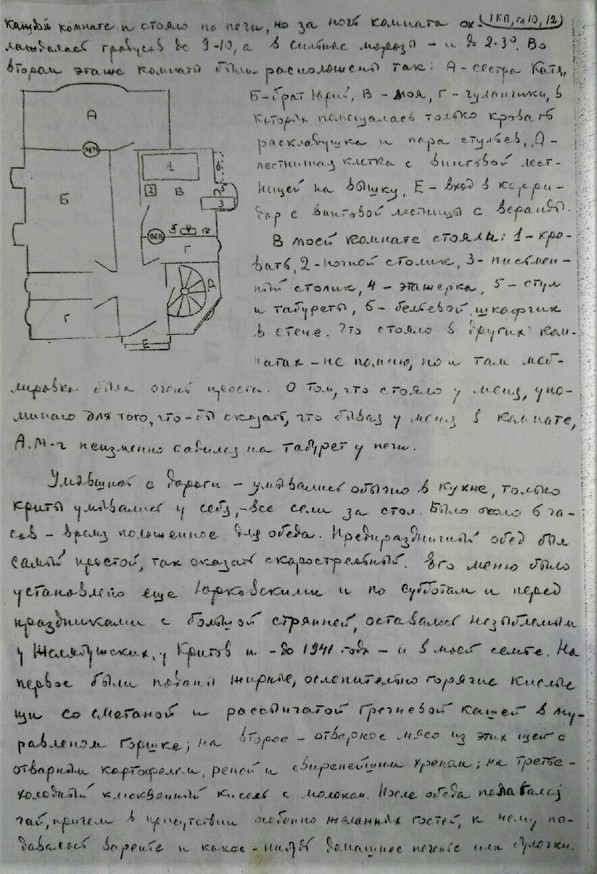 каждой комнате и стояло по печи, но за ночь комната ох- (1 КП, гл 10, 12)
лаждалась градусов до 9-10, а в сильные морозы – и до 2-3°. Во
втором этаже комнаты были расположены так: А-сестра Катя,
Б-брат Юрий, В - моя, Г - чуланчики, в
которых помещалась только кровать
раскладушка и пара стульев, Д-
лестничная клетка с винтовой лест-
ницей на вышку, Е-вход в корри-
дор с винтовой лестницы с веранды.
В моей комнате стояли: 1-кро-
вать, 2-ночной столик, 3-письмен-
ный столик, 4 - этажерка, 5 - стул
и табуреты, 6 - бельевой шкафчик
в стене. Что стояло в других ком-
натах – не помню, но и там меб-
лировка была очень проста. О том, что стояло у меня, упо-
минаю для того, что-бы сказать, что бывая у меня в комнате,
А.М-ч неизменно садился на табурет у печи.
Умывшись с дороги – умывались обычно в кухне, только
Криты умывались у себя, – все сели за стол. Было около 6 ча-
сов – время положенное для обеда. Предпраздничный обед был
самый простой, так сказать скорострельный. Его меню было
установлено еще Юрковскими и по субботам и перед
праздниками с большой стряпней, оставалось незыблемым
у Желябужских, у Критов и – до 1941 года – и в моей семье. На
первое были поданы жирные, ослепительно горячие кислые
щи со сметаной и рассыпчатой гречневой кашей в му-
равленом горшке; на второе – отварное мясо из этих щей с
отварным картофелем, репой и свирепейшим хреном; на третье –
холодный клюквенный кисель с молоком. После обеда подавался
чай, причем в присутствии особенно желанных гостей, к нему по-
давалось варенье и какое-нибудь домашнее печенье или булочки.
А
ПЕЧ
Б
1
2
В
6
5
3
ПЕЧ
5
4
Г
Д
Г
Е